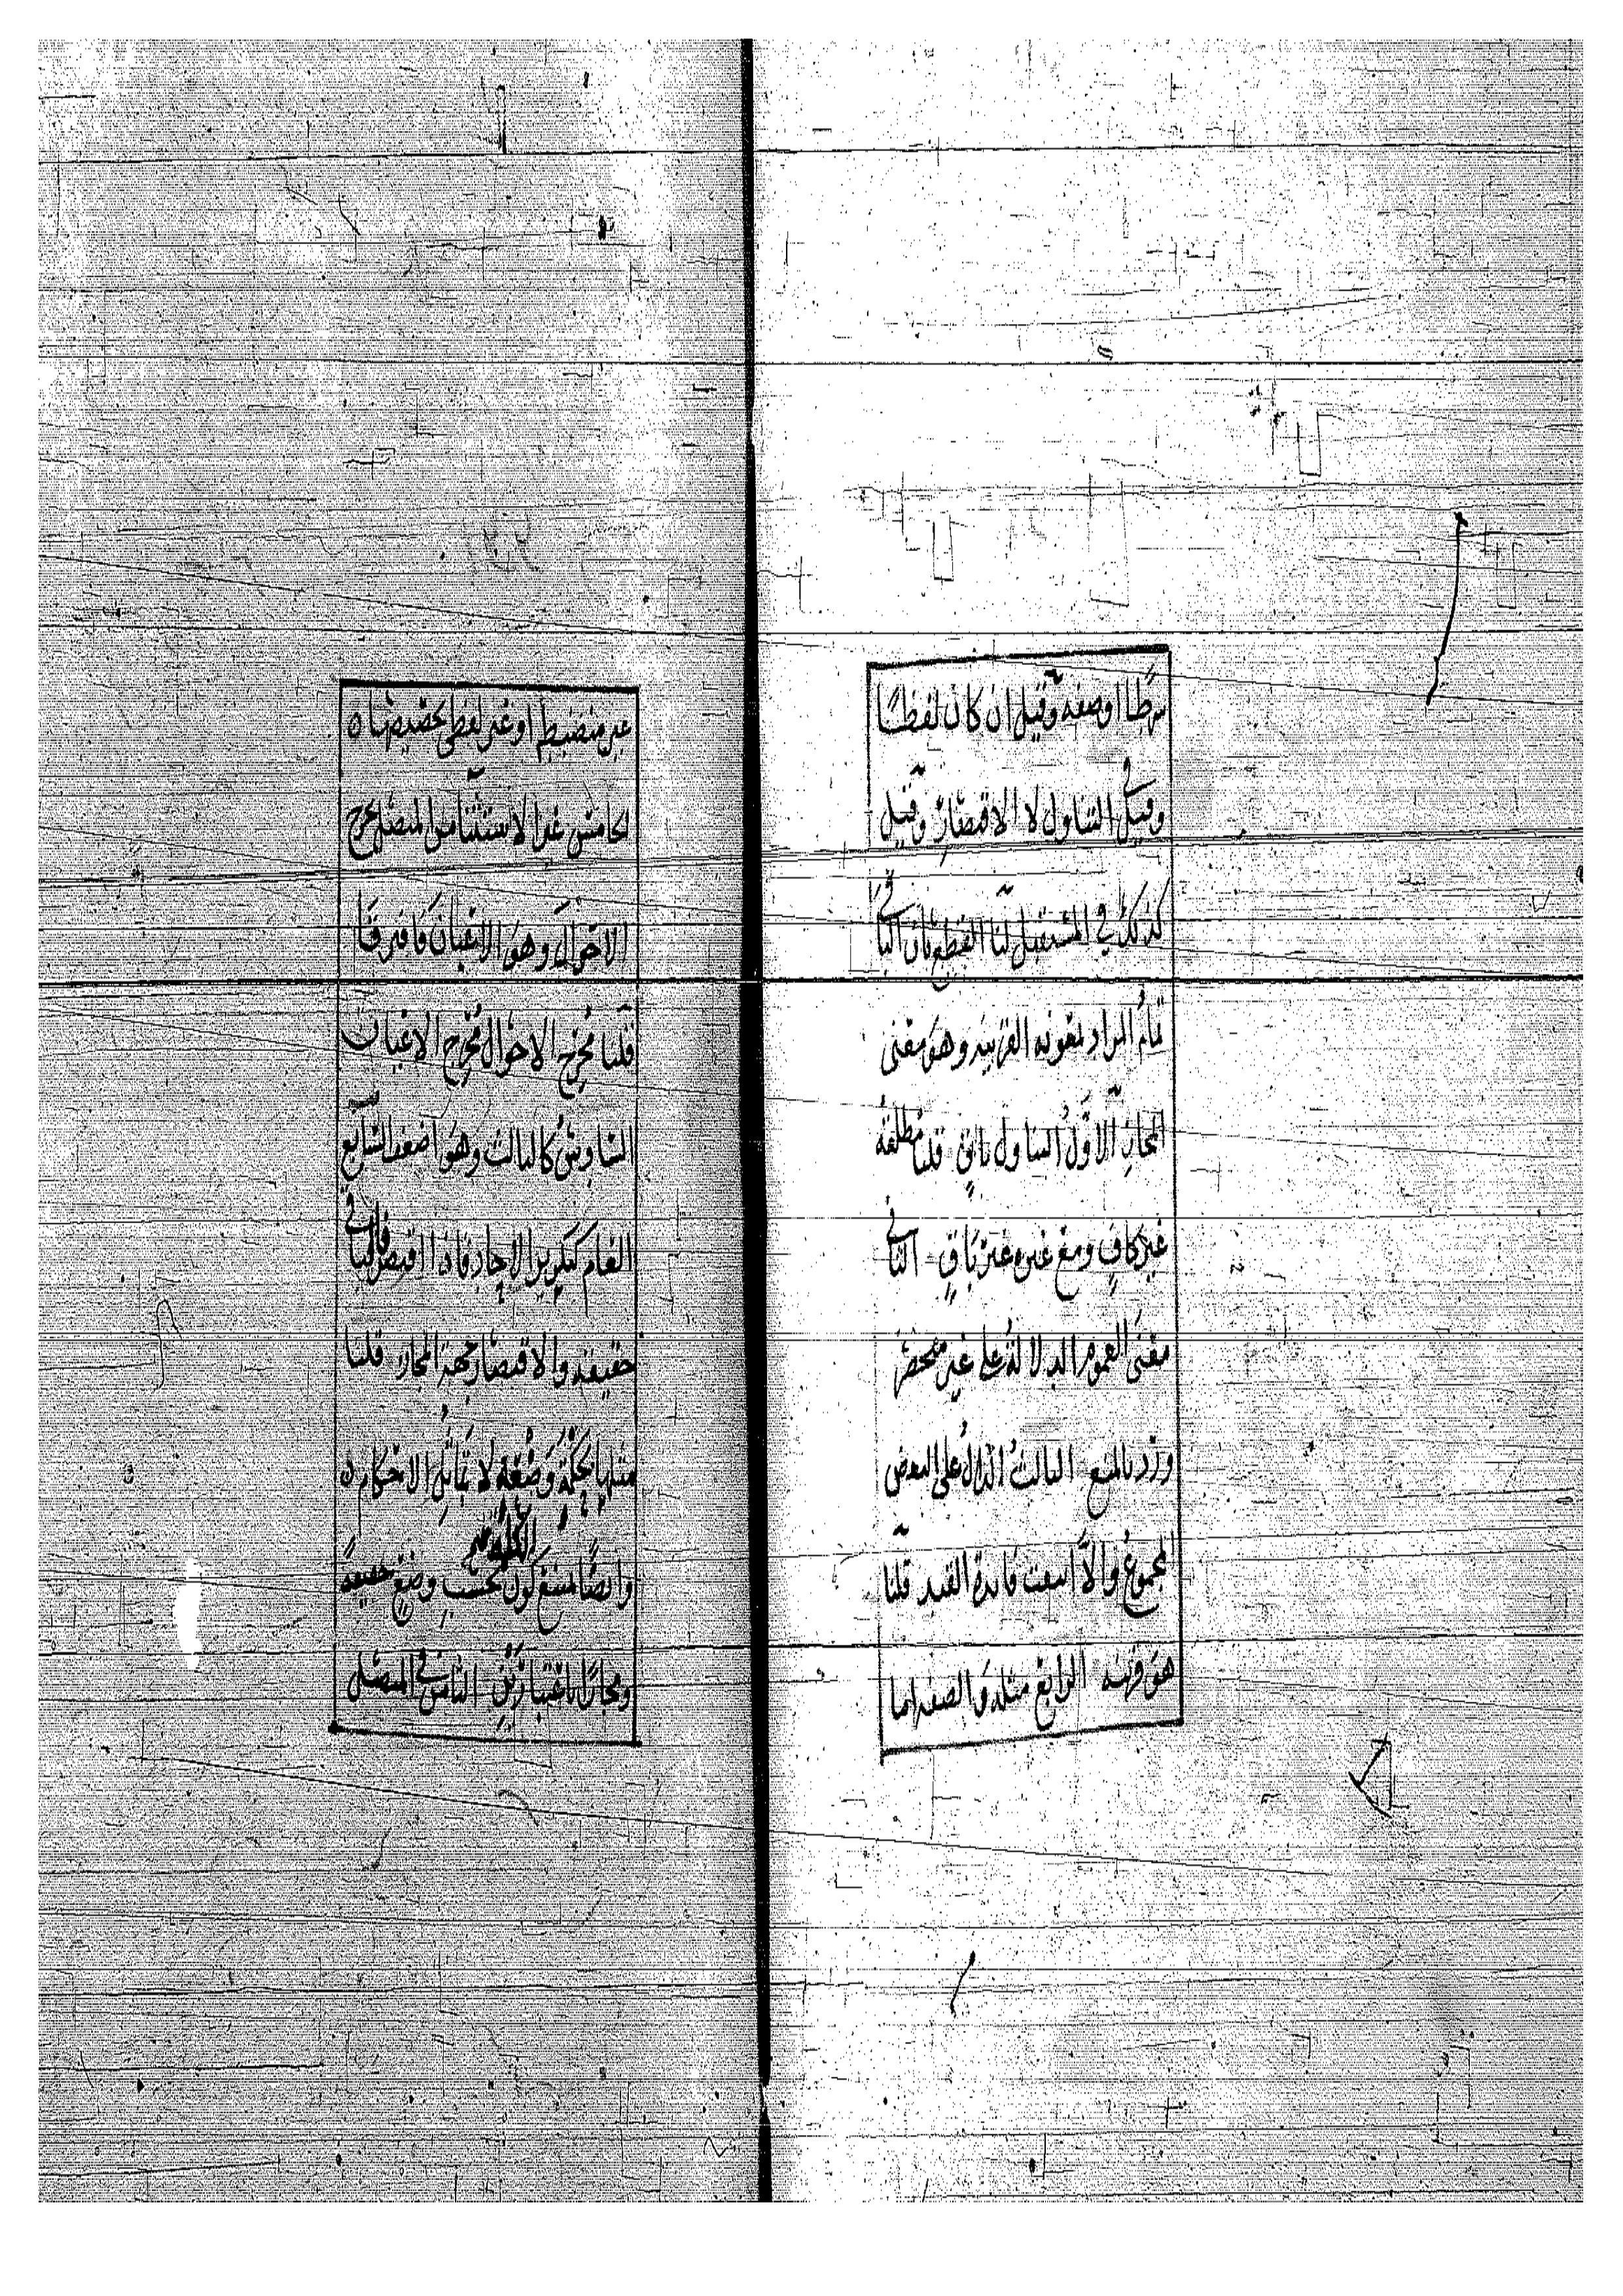 شرطا او صفه وقيل ان كان لفظيا
وقيل في التناول لا الاقتصار وقيل
كذلك في المستقبل لنا القطع بان الباقي
تمام المراد بمعونه القرينه وهو معنى
المجاز الاول التناول باق قلنا مطلقه
غير كاف ومع غيره غير باق الثاني
معنى العموم الدلاله على غير منحصر
ورد بالمنع الثالث الدال على البعض
المجموع والا انتفت فايدة القيد قلنا
هو قرينه الرابع مثله والصفه انما
غير منضبط او غير لفظي تخصيصها ه
الخامس غير الاستثنا من المتصل مخرج
الاحوال وهو الاعيان فافترقا
قلنا مخرج الاحوال مخرج الاعيان
السادس كالثالث وهو اضعف السابع
العام كتكرير الاحاد فاذا اقتصر فالباقي
حقيقه والاقتصار جهة المجاز قلنا
مثلها بحكمة وضعه لا تماثل الاحكام ه
وايضا منع كون بحسب وضع حقيقة
ومجازا باعتبارين الثامن في المتصل